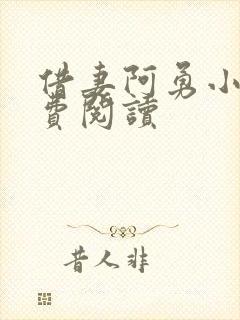 借妻阿勇小
費閱讀
昔人非